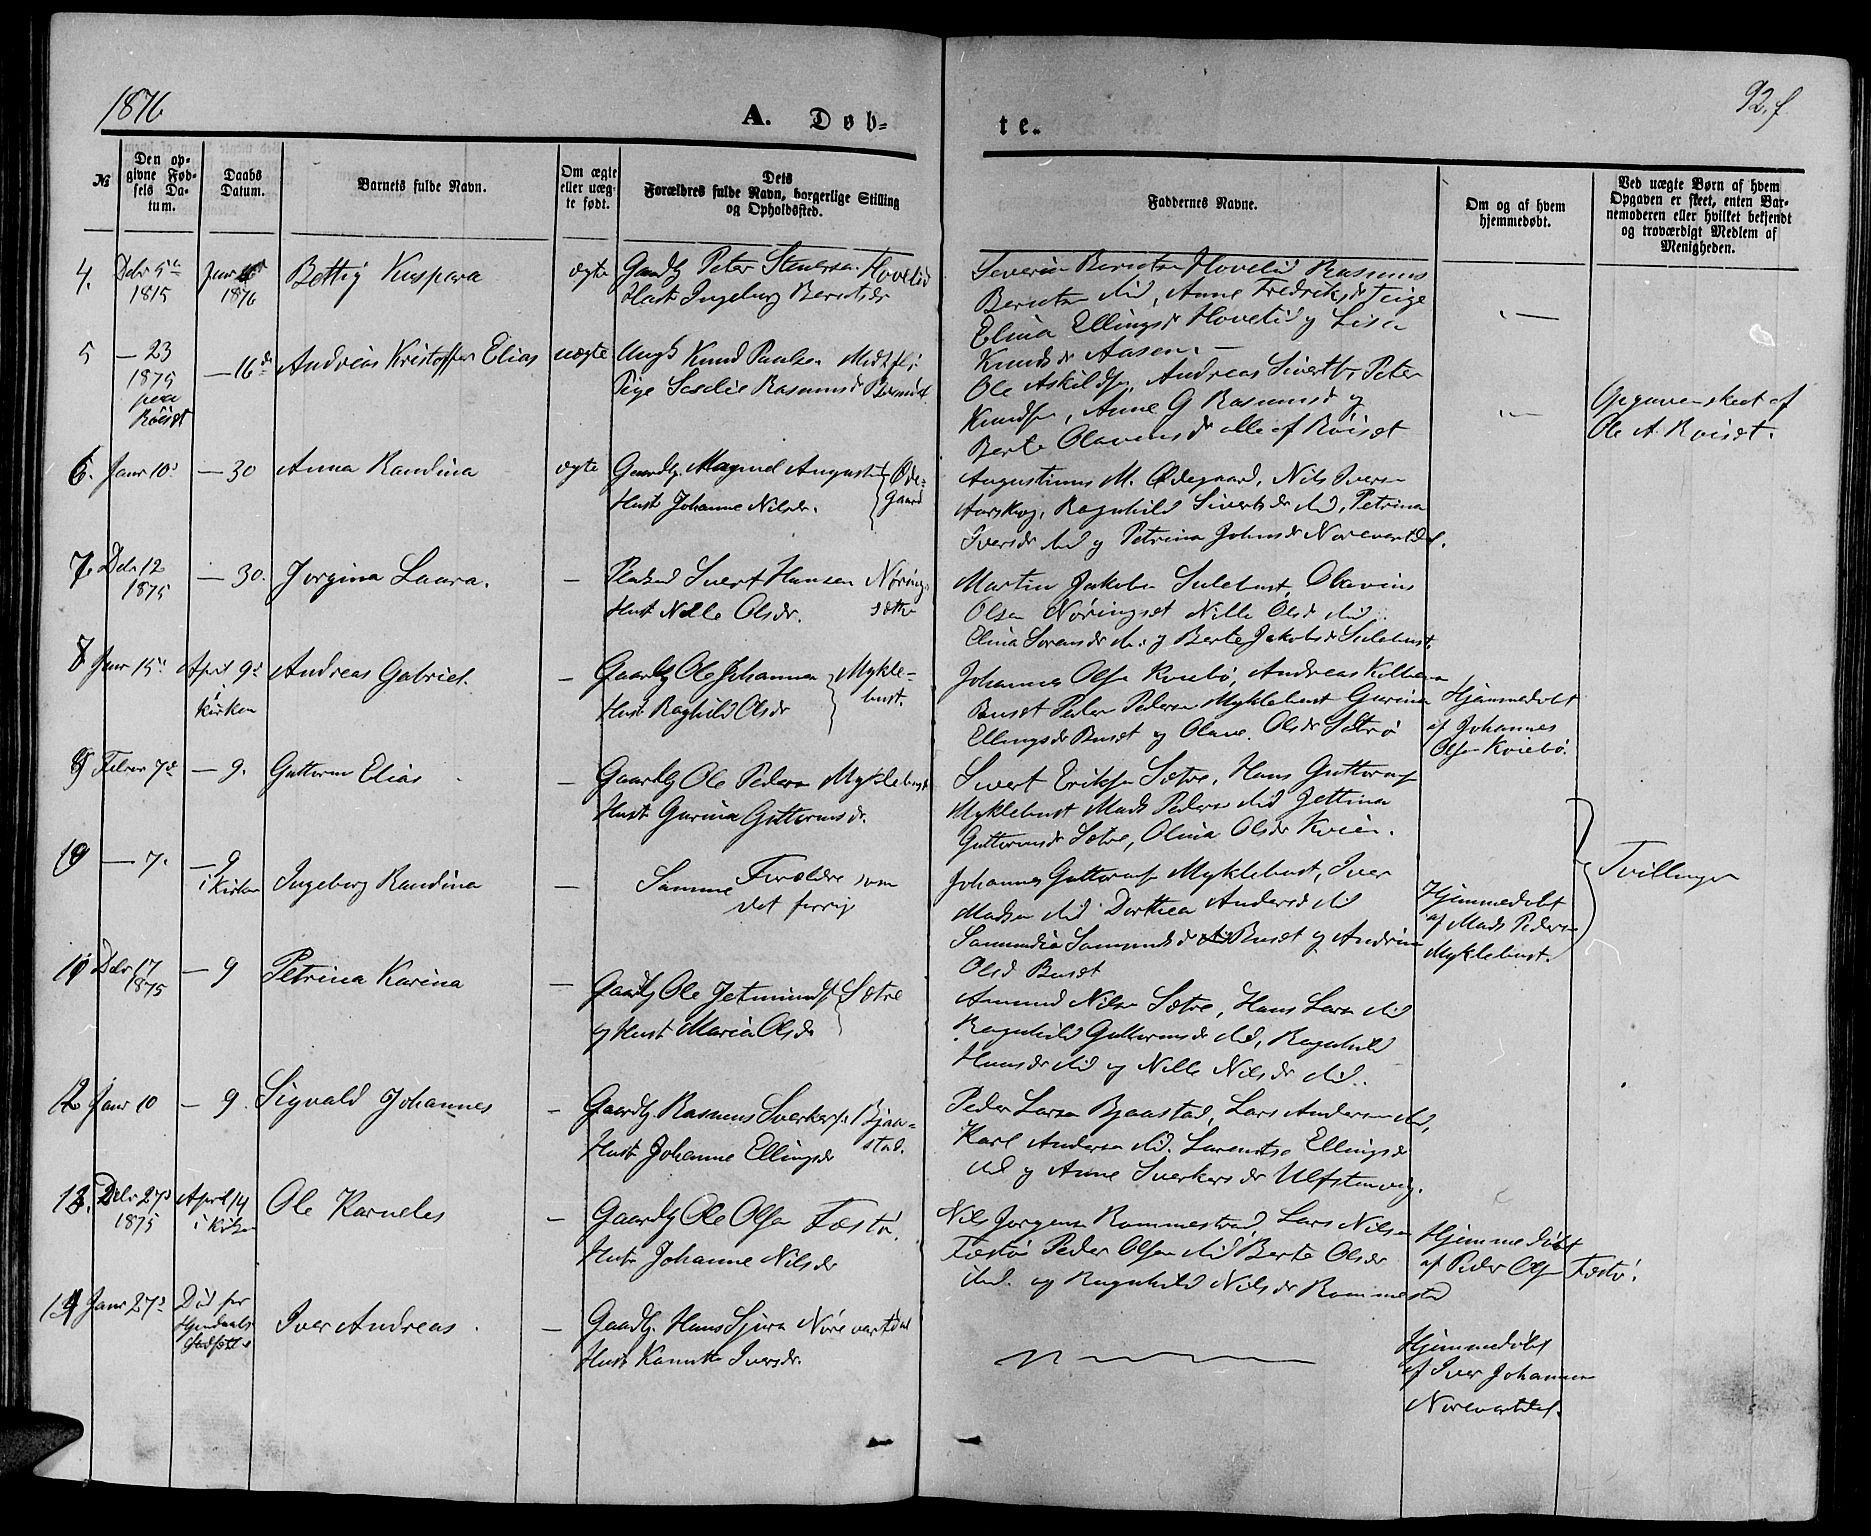 1876
A. Døb-
te.
92. f
№
Den op-
givne Fød-
sels Da-
tum.
Daabs
Datum.
Barnets fulde Navn.
Om ægte
eller uæg-
te født.
Dets
Forældres fulde Navn, borgerlige Stilling
og Opholdssted.
Faddernes Navne.
Om og af hvem
hjemmedøbt.
Ved uægte Børn af hvem
Opgaven er skeet, enten Bar-
nemoderen eller hvilket bekjendt
og troværdigt Medlem af
Menigheden.
4.
Januar
1876
ægte
Gaardbr Peter Stenersen Hovelid
Hust Ingeborg Berntsdr
Severin Berntsen Hovelid Rasmus
Berntsen ibid, Anne Fredriksdr
Elina Ellingsdr Hovelid og Lisa
Knudsdr Aasen. —
5
— 23
1875
paa
Röiset
— 16de
Andreas Kristoffer Elias
uægte
Ungk Knud Paulsen
Pige Rasmusdr
Ole Askildsen, Andreas Sivertsen, Peter
Knudsen, Anne G Rasmusdr og
Berte Olavensdr alle af Röiset
Opgaven skeet af
Ole A. Roiset.
6.
Janr 10de
— 30
Anna Randina
ægte
Gaardbr. Magnus
Hust Johanne Nilsdr.
Øde-
gaard
Augustinus M. Ødegaard, Nils Iversen
Aarskog, Ragnhild Sivertsdr ibid, Petrina
Iversdr ibid og Petrina Johnsdr Norevartdal.
7.
Debr 12
1875
— 30.
Jorgina Laura.
—
Sivert Hansen
Hust Nille Olsdr.
Martin Jakobsen Sulebust, Olavius
Olsen Nøringset Nille Olsd ibid
Elina Sorensdr ibid og Berte Jakobsdr Sulebust.
8
Janr 15de
April 9de
i
kirken
Andreas Gabriel.
—
Gaardbr Ole Johannesen
Hust Ragnhild Olsdr
Mykle-
bust.
Johannes Olsen Kviebø, Andreas
Buset Peder Pedersen Myklebust Gurina
Ellingsdr Buset og Olave. Olsdr
Hjemmedøbt
af Johannes
Olsen Kviebø.
9
Febrer 7de
— 9.
Guttorm Elias
—
Gaardbr Ole Pedersen Myklebust
Hust Gurina Guttormsdr.
Sivert Eriksen Sætre, Hans Guttormsen
Myklebust Mads Pedersen ibid Jettina
Guttormsdr Sætre, Olina Olsdr Kvien.
10
— 7.
— 9
i Kirken
Ingeborg Randina
—
Samme Forældre som
det forrige
Johannes Guttormsen Myklebust, Iver
Madsen ibid Dorthea Andersd ibid
Buset og Andrine
Olsd Buset
Hjemmedøbt
af Mads Pedersen
Myklebust.
Tvillinger
11
Debr 17
1875
— 9
Petrina Karina
—
Gaardbr Ole Jetmundsen Sætre
og Hust Maria Olsdr
Amund Nilsen Sætre, Hans Larsen ibid
Ragnhild Guttormsdr ibid, Ragnhild
Hansdr ibid og Nille Nilsdr ibid.
12
Janr 10
— 9.
Sigvald Johannes
—
Gaardbr. Rasmus Sverkersen Bjaa-
stad.
Hust Johanne Ellingsdr
Peder Larsen Bjaastad, Lars Andersen ibid,
Karl Andersen ibid. Larentse Ellingsdr
ibid og Anne Sverkersdr Ulfstenvig.
13.
Debr 27de
1875
April 14
i Kirken
Ole Karneles
—
Gaardbr Ole Olsen Festø.
Hust Johanne Nilsdr
Nils Jorgensen Rommestrad, Lars Nilsen
Festø Peder Olsen ibid Berte Olsdr
ibid. og Ragnhild Nilsdr Rommestad
Hjemmedøbt
af Peder Olsen Festø.
14
Janr 27de
Død før
Iver Andreas.
—
Gaardbr. Hans Norevartdal
Hust Iversdr.
Hjemmedøbt
af Iver Johannesen
Norevartdal.